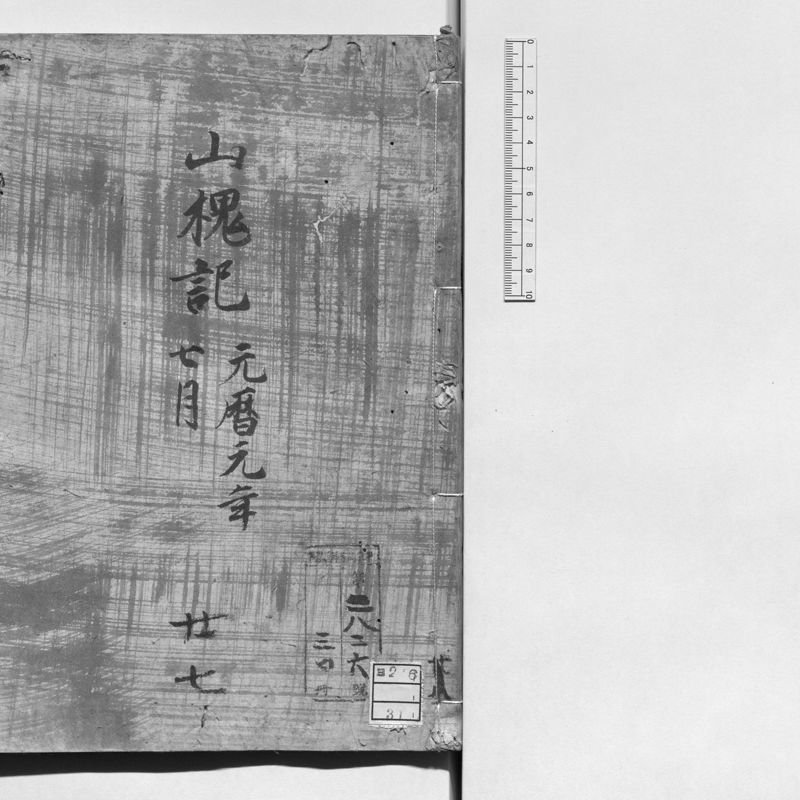 山槐記
元暦元年
七月
廿七
二八二六號
三四冊
26
31
0 1 2 3 4 5 6 7 8 9 10